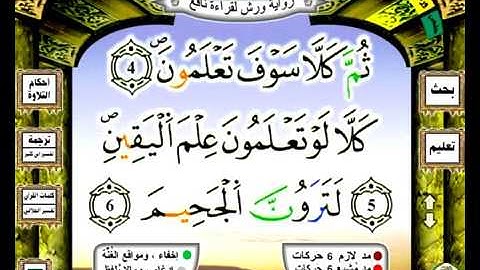 رواية ورش لقراءة نافع
ثُمَّ كَلَّا سَوْفَ تَعْلَمُونَۖ 4
كَلَّا لَوْ تَعْلَمُونَ عِلْمَ اَلْيَقِينِۖ
5 لَتَرَوُنَّ اَلْجَحِيمَ 6
بحث
تعليم
أحكام
التلاوة
ترجمة
تفسير ابن كثير
كلمات القرآن
تفسير الجلالين
مد لازم 6 حركات
مد مشبع 6 حركات
إخفاء ، ومواقع الغُنَّة